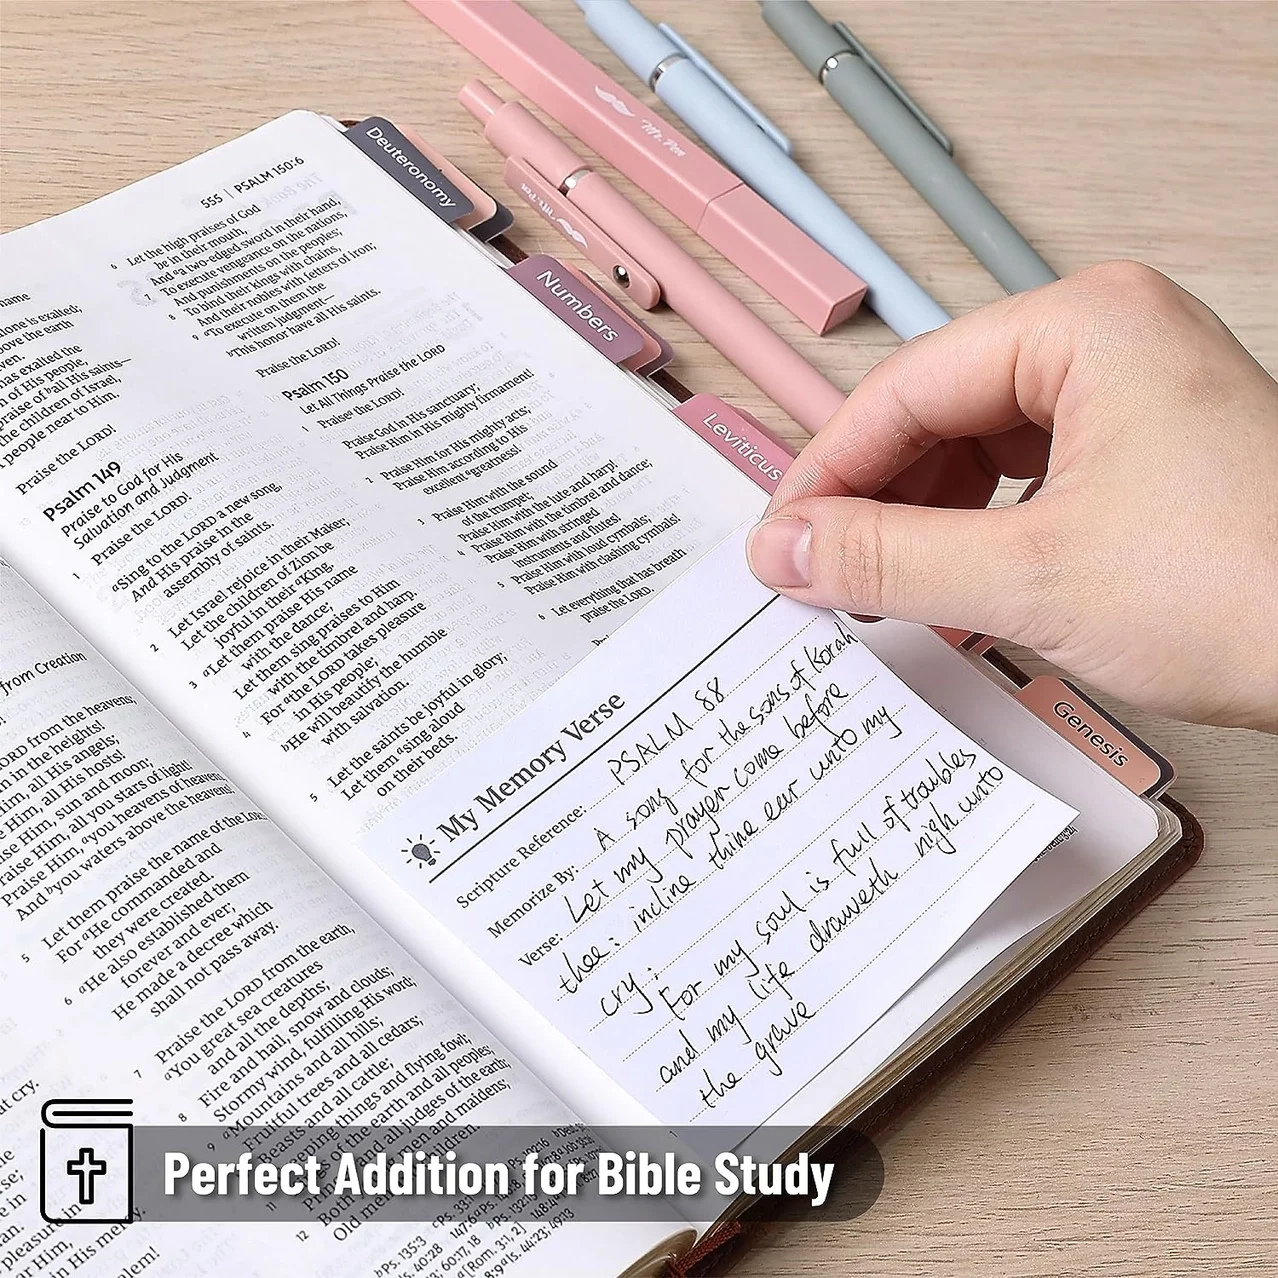 555 | PSALM 150:6
name
alone is exalted;
above the earth
heaven.
has exalted the
n of His people,
praise of ball His saints—
the children of Israel,
people near to Him.
Praise the LORD!
Psalm 149
Praise to God for His
Salvation and Judgment
1 Praise the LORD!
aSing to the LORD a new song,
And His praise in the
assembly of saints.
2 Let Israel rejoice in their Maker;
Let the children of Zion be
joyful in their aKing.
3 aLet them praise His name
with the dance;
Let them sing praises to Him
with the timbrel and harp.
4 For athe LORD takes pleasure
in His people;
bHe will beautify the humble
with salvation.
5 Let the saints be joyful in glory;
Let them asing aloud
on their beds.
6 Let the high praises of God
be in their mouth,
And aa two-edged sword in their hand,
7 To execute vengeance on the nations,
And punishments on the peoples;
8 To bind their kings with chains,
And their nobles with fetters of iron;
9 aTo execute on them the
written judgment—
bThis honor have all His saints.
Praise the LORD!
Psalm 150
Let All Things Praise the LORD
1 Praisea the LORD!
Praise God in His sanctuary;
Praise Him in His mighty firmament!
2 Praise Him for His mighty acts;
Praise Him according to His
excellent agreatness!
3 Praise Him with the sound
of the trumpet;
Praise Him with the lute and harp!
4 Praise Him with the timbrel and dance;
Praise Him with stringed
instruments and flutes!
5 Praise Him with loud cymbals;
Praise Him with clashing cymbals!
6 Let everything that has breath
praise the LORD.
from Creation
LORD from the heavens;
in the heights!
Him, all His angels;
Him, all His hosts!
Him, sun and moon;
Praise Him, all you stars of light!
Praise Him, ayou heavens of heavens,
And byou waters above the heavens!
5 Let them praise the name of the LORD,
For aHe commanded and
they were created.
6 aHe also established them
forever and ever;
He made a decree which
shall not pass away.
7 Praise the LORD from the earth,
aYou great sea creatures
and all the depths;
8 Fire and hail, snow and clouds;
Stormy wind, fulfilling His word;
9 aMountains and all hills;
Fruitful trees and all cedars;
Beasts and all cattle;
creeping things and flying fowl;
of the earth and all peoples;
and all judges of the earth;
men and maidens;
12
Old men and children.
Deuteronomy
Numbers
Leviticus
Genesis
Mr. Pen
Mr. Pen
My Memory Verse
Scripture Reference: PSALM 88
Memorize By: A song for the sons of Korah
Verse: Let my prayer come before
thee: incline thine ear unto my
cry;
For my soul is full of troubles
and my life draweth nigh unto
the grave
Perfect Addition for Bible Study